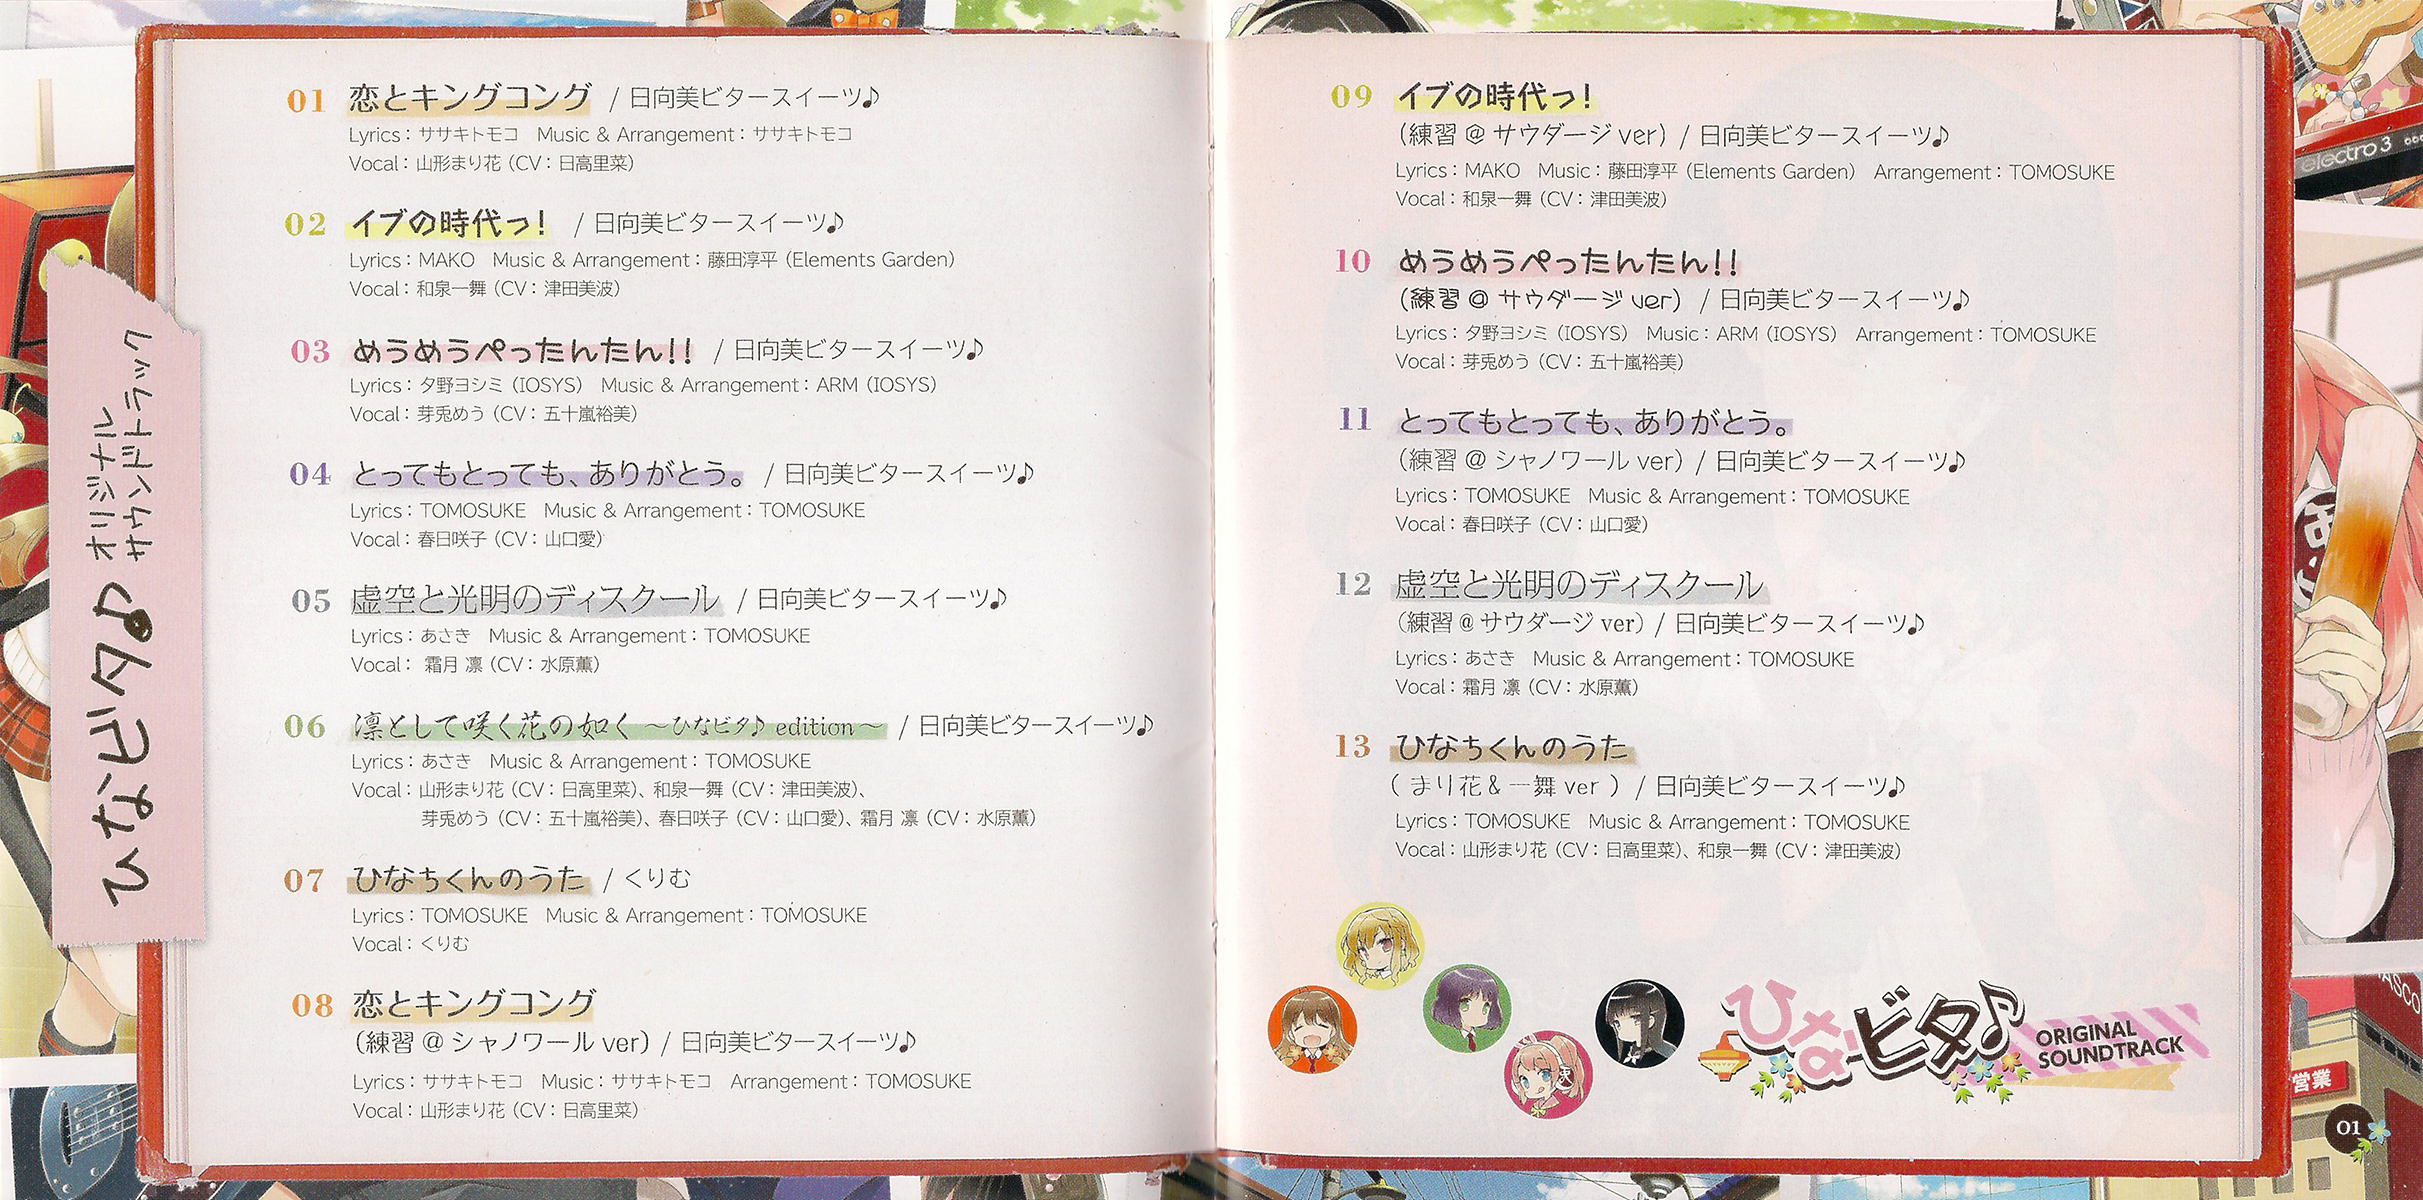 ひなビタ♪ オリジナル
サウンドトラック
01 恋とキングコング / 日向美ビタースイーツ♪
Lyrics：ササキトモコ Music & Arrangement：ササキトモコ
Vocal：山形まり花（CV：日高里菜）
02 イブの時代っ！ / 日向美ビタースイーツ♪
Lyrics：MAKO Music & Arrangement：藤田淳平（Elements Garden）
Vocal：和泉一舞（CV：津田美波）
03 めうめうぺったんたん！！ / 日向美ビタースイーツ♪
Lyrics：夕野ヨシミ（IOSYS） Music & Arrangement：ARM（IOSYS）
Vocal：芽兎めう（CV：五十嵐裕美）
04 とってもとっても、ありがとう。 / 日向美ビタースイーツ♪
Lyrics：TOMOSUKE Music & Arrangement：TOMOSUKE
Vocal：春日咲子（CV：山口愛）
05 虚空と光明のディスクール / 日向美ビタースイーツ♪
Lyrics：あさき Music & Arrangement：TOMOSUKE
Vocal： 霜月 凛（CV：水原薫）
06 凛として咲く花の如く ～ひなビタ♪ edition～ / 日向美ビタースイーツ♪
Lyrics：あさき Music & Arrangement：TOMOSUKE
Vocal：山形まり花（CV：日高里菜）、和泉一舞（CV：津田美波）、
芽兎めう（CV：五十嵐裕美）、春日咲子（CV：山口愛）、霜月 凛（CV：水原薫）
07 ひなちくんのうた / くりむ
Lyrics：TOMOSUKE Music & Arrangement：TOMOSUKE
Vocal：くりむ
08 恋とキングコング
（練習＠シャノワール ver）/ 日向美ビタースイーツ♪
Lyrics：ササキトモコ Music：ササキトモコ Arrangement：TOMOSUKE
Vocal：山形まり花（CV：日高里菜）
09 イブの時代っ！
（練習＠サウダージ ver）/ 日向美ビタースイーツ♪
Lyrics：MAKO Music：藤田淳平（Elements Garden） Arrangement：TOMOSUKE
Vocal：和泉一舞（CV：津田美波）
10 めうめうぺったんたん！！
（練習＠サウダージ ver）/ 日向美ビタースイーツ♪
Lyrics：夕野ヨシミ（IOSYS） Music：ARM（IOSYS） Arrangement：TOMOSUKE
Vocal：芽兎めう（CV：五十嵐裕美）
11 とってもとっても、ありがとう。
（練習＠シャノワール ver）/ 日向美ビタースイーツ♪
Lyrics：TOMOSUKE Music & Arrangement：TOMOSUKE
Vocal：春日咲子（CV：山口愛）
12 虚空と光明のディスクール
（練習＠サウダージ ver）/ 日向美ビタースイーツ♪
Lyrics：あさき Music & Arrangement：TOMOSUKE
Vocal：霜月 凛（CV：水原薫）
13 ひなちくんのうた
（まり花＆一舞 ver ）/ 日向美ビタースイーツ♪
Lyrics：TOMOSUKE Music & Arrangement：TOMOSUKE
Vocal：山形まり花（CV：日高里菜）、和泉一舞（CV：津田美波）
ひなビタ♪ ORIGINAL
SOUNDTRACK
electro 3
営業
01